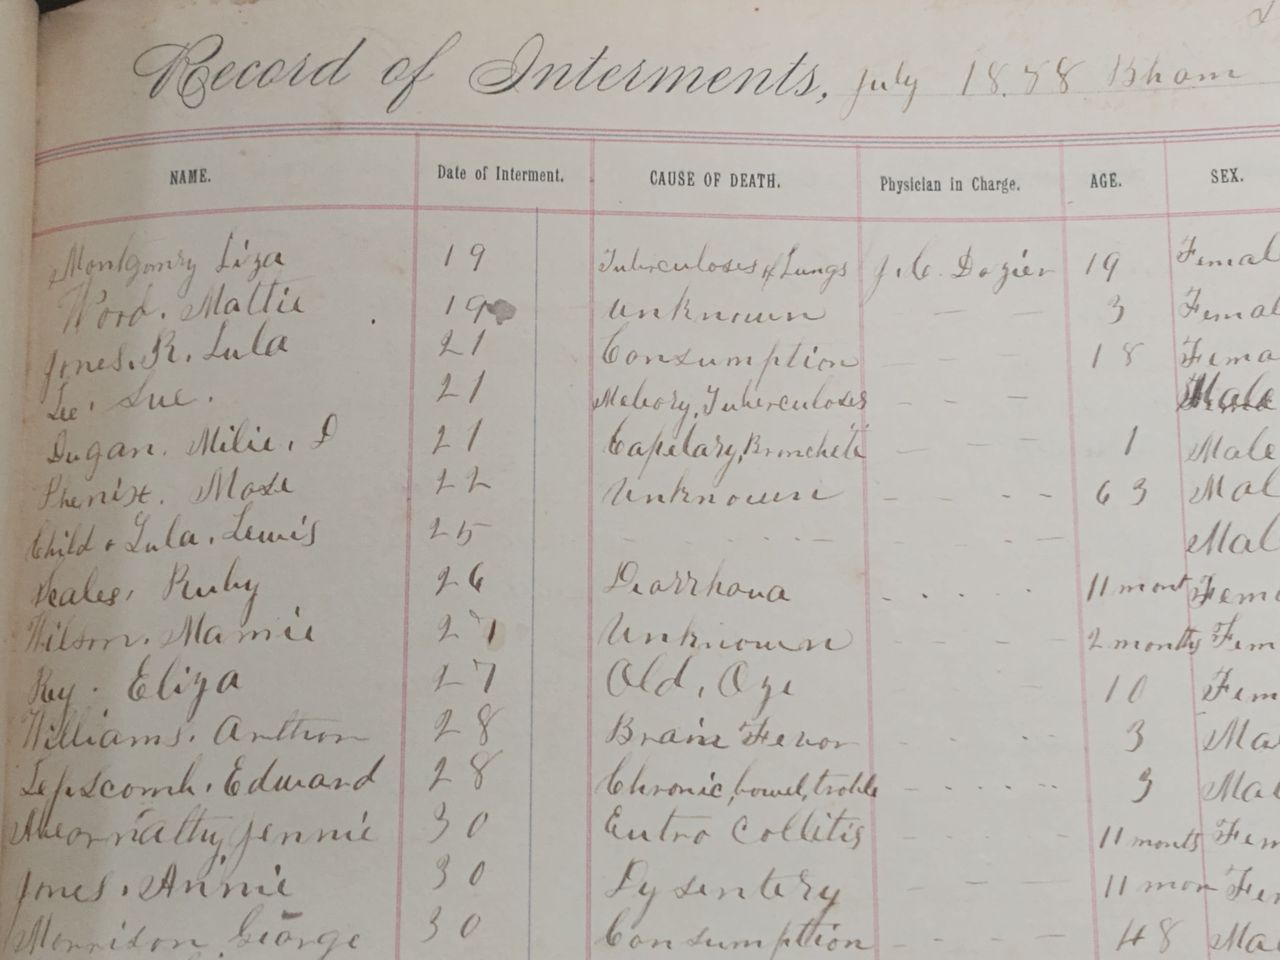 Record of Interments, July 1888 Bham
NAME. Date of Interment. CAUSE OF DEATH. Physician in Charge. AGE. SEX.
Montgomry Liza 19 Tuberculoses of Lungs J. C. Dozier 19 Femal
Word. Mattie 19 Unknown — — — 3 Femal
Jones. R. Lula 21 Consumption — — — 18 Fema
Lee. Sue. 21 Tuberculoses — — — Male
Dugan. Milie. D 21 Capelary, Bronchete — — — 1 Male
Phenix. Mose 22 Unknown - - - - 63 Mal
Child of Lula. Lewis 25 - - - - - - - - Mal
Veales, Ruby 26 Diarrhoua . . . . . 11 mont Fema
Wilson. Mamie 27 Unknown - - - - 2 months Fem
Key. Eliza 27 Old, Age - - - 10 Fem
Williams. Arthor 28 Brain Fevor - - - - 3 Ma
Lepscomb. Edward 28 Chronic, bowel, troble - - - - - 3 Mal
Abeornathy, Jennie 30 Entro Collitis - - - - 11 months Fem
Jones. Annie 30 Dysentery - - - 11 mon Fem
Morrison George 30 Consumption - - - - 48 Ma